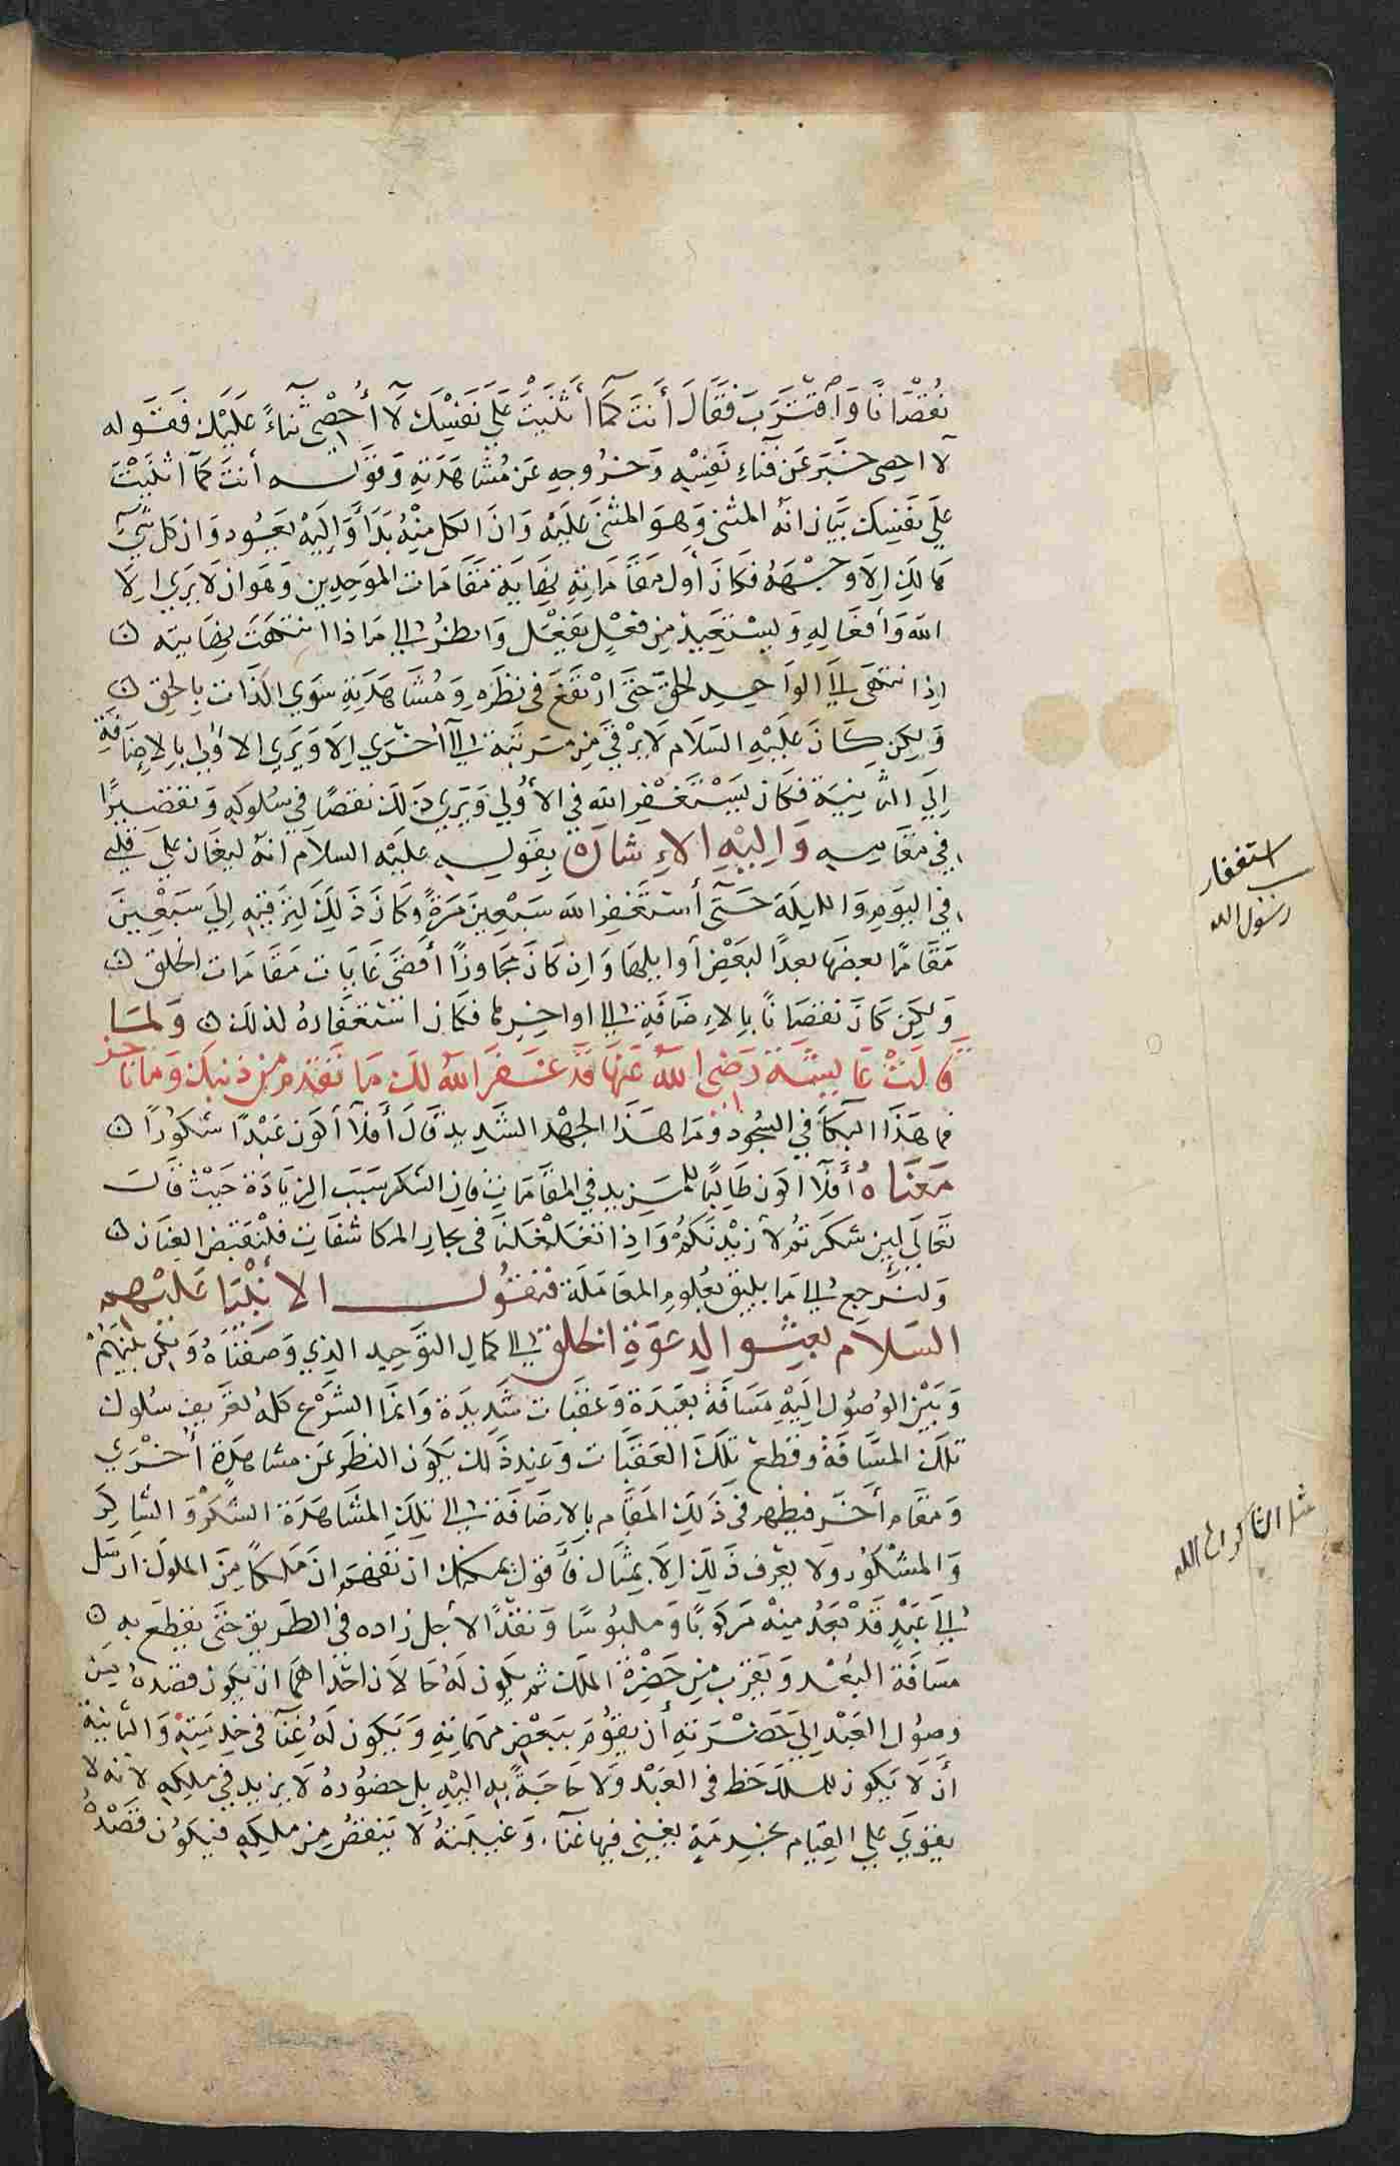 نُقْصَانًا وَاقْتَرَبَ فَقَالَ أَنتَ كَمَا أَثْنَيْتَ عَلَي نَفْسِكَ لَآ أُحْصِي ثَنَاءً عَلَيْكَ فَقَوله
لا احصي خَبَر عَن فَنَاءِ نَفْسِهِ وَخرُوجِهِ عَن مُشَاهَدَتِهِ وَقَوْلـــه أنتَ كَمَآ اثْنَيْتَ
عَلَي نَفسِكَ بَيَان انّه المثنى وَهوَ المثنَى عَلَيْهِ وَانَ الكل مِنْهُ بَدَأَ وَالَيْهِ يَعُود وَان كل شَيْ
هَالِك إلاَ وَجْهَهُ فَكَانَ أول مَقَامَاتِهِ نِهَايَة مَقَامَات الموَحِدِين وَهَوان لَا يَرَي الَا
الله وَأفعَالِهِ وَيَسْتَعيذ مِن فِعْلٍ بِفِعْل وَانظرُ الي مَاذا انتَهَتَ نِهَايته ن
اِذا نتهَى الَي الوَاحِد الحقّ حَتَى ارْتَفَعَ في نظَرِهِ وَمُشَاهَدَتِهِ سِوَي الذَات بالحق ن
وَلكِن كَانَ عَلَيْهِ السَلَام لَا يَرْقي مِن مَرتَبَة الي أخْرَي الَا وَيَري الاولي بِالاِضَافَةِ
اِلَي الثانِيَة فكَان يَسْتَغْفِر الله في الأولي وَيَرَي ذَلكَ نقصًا في سُلوكِهِ وَتقصِيرًا
في مَقَامِه وَاِليْهِ الاِشَارَة بِقَولِــه عليْه السلام انّه ليغَان علي قلبي
في اليَومِ وَالليلَة حَتّى أستَغفِر الله سَبْعِينَ مَرَةً وَكَانَ ذَلِكَ لِتَرقيه اِليَ سَبْعِينَ
مَقَامًا بعضهَا بعدًا لبَعْض أوايلهَا وَان كَانَ مجاوزًا أقصَى غَايَات مَقَامَات الخلق ن
وَلكِن كَانَ نقصَانًا بِالاِضَافَةِ الي اواخِرِهَا فكان استغفَارهُ لذلك ن وَلمَـا
قَالَتْ عَايشَة رَضِي اللهُ عَنْهَا قَد غَفَرَ اللهُ لكَ مَا تَقدم من ذنبِكَ وَمَا تأخر
فما هَذَا البكَآ في السُجُود وَمَا هَذَا الجهْد الشَدِيد قَالَ أَفَلآ أكون عَبْدًا شكورًا ن
مَعنَاهُ أَفَلَا اكون طَالِبًا للمَزيد في المقَامَات فان الشكر سَبَب الزيَادَة حَيْثُ قَالَ
تعَالَي لَين شكَرتُم لأزيْدنَكمْ وَاِذا تغَلغَلنَا في بحار المكاشفات فلنقبَض العِنَان ن
وَلنَرجع الي مَا يليق بعُلومِ المعَامَلَة فَنقولــــ الانْبِيَا عَلَيْهم
السَلَام بعِثوا لِدعْوَةِ الخلق الي كمالِ التوحِيد الذي وَصَفْنَاهُ وَلكن بَيْنَهُمْ
وَبَيْن الوُصُول الَيْهِ مَسَافَةُ بعَيدَةُ وَعَقبَات شدِيدَة وَانمَا الشرْع كلهُ تعريف سُلوك
تلكَ المسَافَة وَقطع تِلْكَ العَقبَات وَعِند ذَلك يكَون النظَر عَن مشاهدَة أخْرَي
وَمقَام أخَر فيظهر في ذَلِكَ المقَام بالاضَافَة الي تلِكَ المشَاهَدَة الشكرُ وَالشَاكِر
وَالمشكُور وَلا يعرف ذَلِكَ اِلَا بمِثَال فَأَقول يمكنك ان تفهم ان مَلكًا مِنَ الملوك ارسَل
الي عَبْدٍ قَدْ بَعُد مِنْه مَركوبًا وَملبُوسًا وَنقدًا لأجل زاده في الطَريق حَتّى يقطع به ن
مسَافَة البُعْد وَيَقرب مِن حَضْرَة الملك ثم يكون لَهُ حَالَان احْدَاهمَا ان يكون قصدهُ من
وصُول العَبْد اِليَ حَضْرَتِهِ أن يقومَ ببَعْض مهمَاتِهِ وَيَكون لهُ غِنآ في خِدمتِهِ وَالثانِية
أن لَا يكون للملك حَظ في العَبْد وَلا حَاجَةً به اليْهِ بل حضورُهُ لَا يزيد في ملكه لانه لا
يقوَي علي القِيَام بخِدمَةٍ يغنِي فيها غَنآء وَغيبَتهُ لَا يَنقصُ مِن ملكِه فيكون قَصْدُهُ
استغفار
رسول الله
مثل الشاكر الي الله